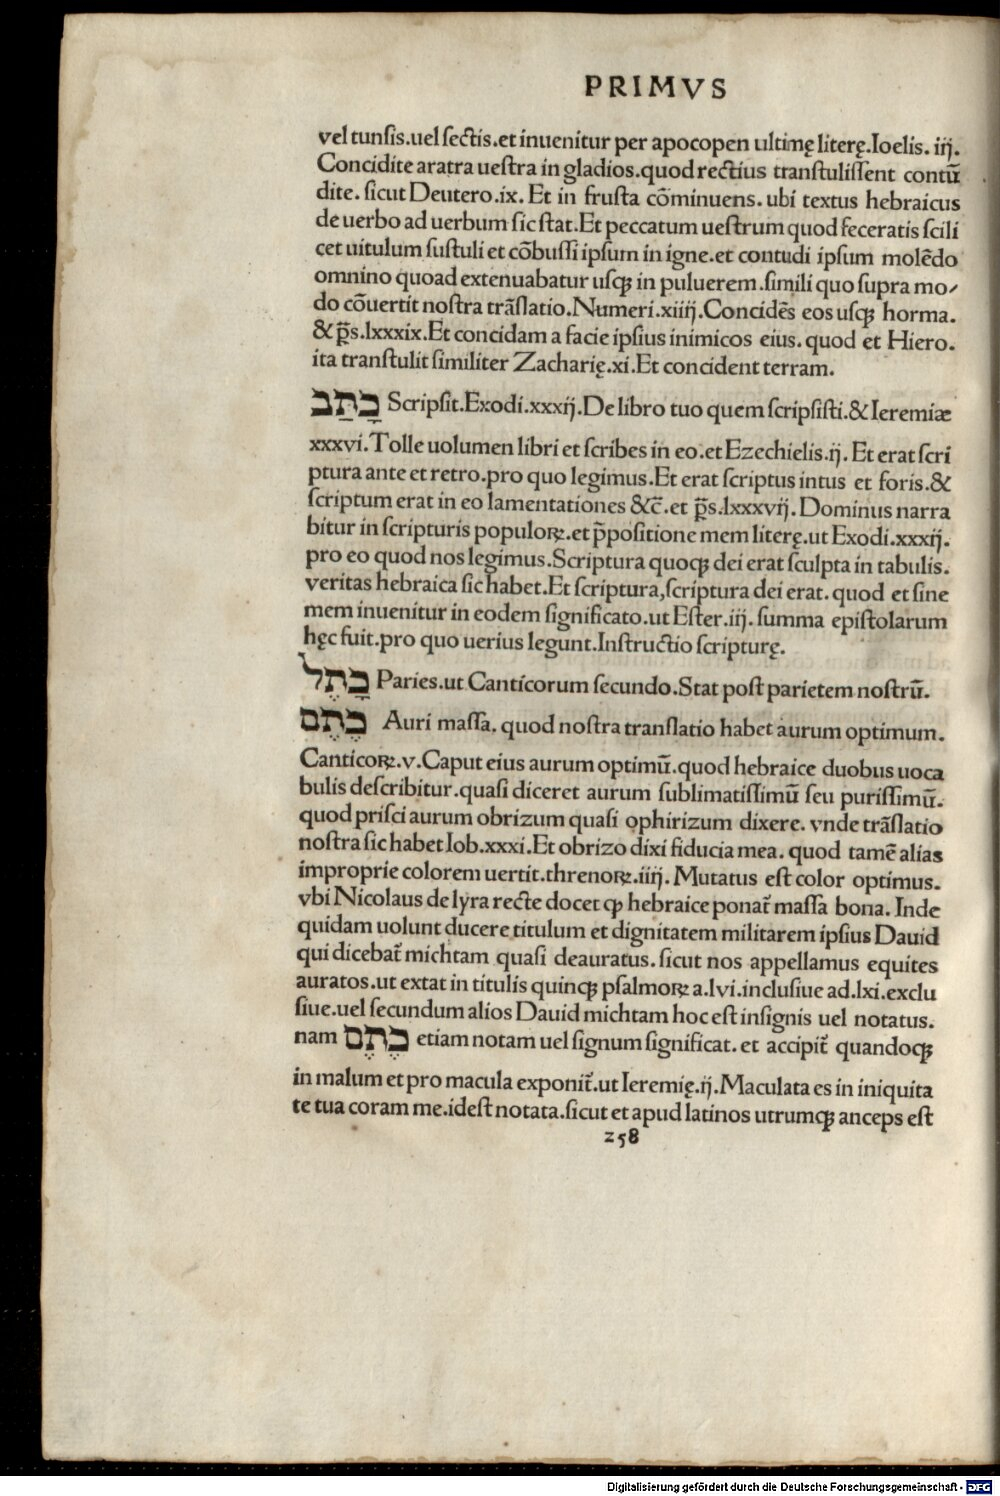 PRIMVS
vel tunſis.uel ſectis.et inuenitur per apocopen ultimę literę.Ioelis. iij.
Concidite aratra ueſtra in gladios.quod rectius tranſtuliſſent contū
dite. ſicut Deutero.ix. Et in fruſta cōminuens. ubi textus hebraicus
de uerbo ad uerbum ſic ſtat.Et peccatum ueſtrum quod feceratis ſcili
cet uitulum ſuſtuli et cōbuſſi ipſum in igne.et contudi ipſum molēdo
omnino quoad extenuabatur uſqꝫ in puluerem.ſimili quo ſupra mo⸗
do cōuertit noſtra trāſlatio.Numeri.xiiij.Concidēs eos uſqꝫ horma.
& p̄s.lxxxix.Et concidam a facie ipſius inimicos eius. quod et Hiero.
ita tranſtulit ſimiliter Zacharię.xi.Et concident terram.
כָּתַב Scripſit.Exodi.xxxij.De libro tuo quem ſcripſiſti.& Ieremiæ
xxxvi.Tolle uolumen libri et ſcribes in eo.et Ezechielis.ij. Et erat ſcri
ptura ante et retro.pro quo legimus.Et erat ſcriptus intus et foris.&
ſcriptum erat in eo lamentationes &c̄.et p̄s.lxxxvij. Dominus narra
bitur in ſcripturis populoꝝ.et p̄poſitione mem literę.ut Exodi.xxxij.
pro eo quod nos legimus.Scriptura quoqꝫ dei erat ſculpta in tabulis.
veritas hebraica ſic habet.Et ſcriptura,ſcriptura dei erat. quod et ſine
mem inuenitur in eodem ſignificato.ut Eſter.iij. ſumma epiſtolarum
hęc fuit.pro quo uerius legunt.Inſtructio ſcripturę.
כָּתֶל Paries.ut Canticorum ſecundo.Stat poſt parietem noſtrū.
כֶּתֶם Auri maſſa. quod noſtra tranſlatio habet aurum optimum.
Canticoꝝ.v.Caput eius aurum optimū.quod hebraice duobus uoca
bulis deſcribitur.quaſi diceret aurum ſublimatiſſimū ſeu puriſſimū.
quod priſci aurum obrizum quaſi ophirizum dixere. vnde trāſlatio
noſtra ſic habet Iob.xxxi.Et obrizo dixi fiducia mea. quod tamē alias
improprie colorem uertit.threnoꝝ.iiij. Mutatus eſt color optimus.
vbi Nicolaus de lyra recte docet qꝫ hebraice ponat̄ maſſa bona. Inde
quidam uolunt ducere titulum et dignitatem militarem ipſius Dauid
qui dicebat̄ michtam quaſi deauratus. ſicut nos appellamus equites
auratos.ut extat in titulis quinqꝫ pſalmoꝝ a.lvi.incluſiue ad.lxi.exclu
ſiue.uel ſecundum alios Dauid michtam hoc eſt inſignis uel notatus.
nam כֶּתֶם etiam notam uel ſignum ſignificat. et accipit̄ quandoqꝫ
in malum et pro macula exponit̄.ut Ieremię.ij. Maculata es in iniquita
te tua coram me.ideſt notata.ſicut et apud latinos utrumqꝫ anceps eſt
258
Digitalisierung gefördert durch die Deutsche Forschungsgemeinschaft - DFG